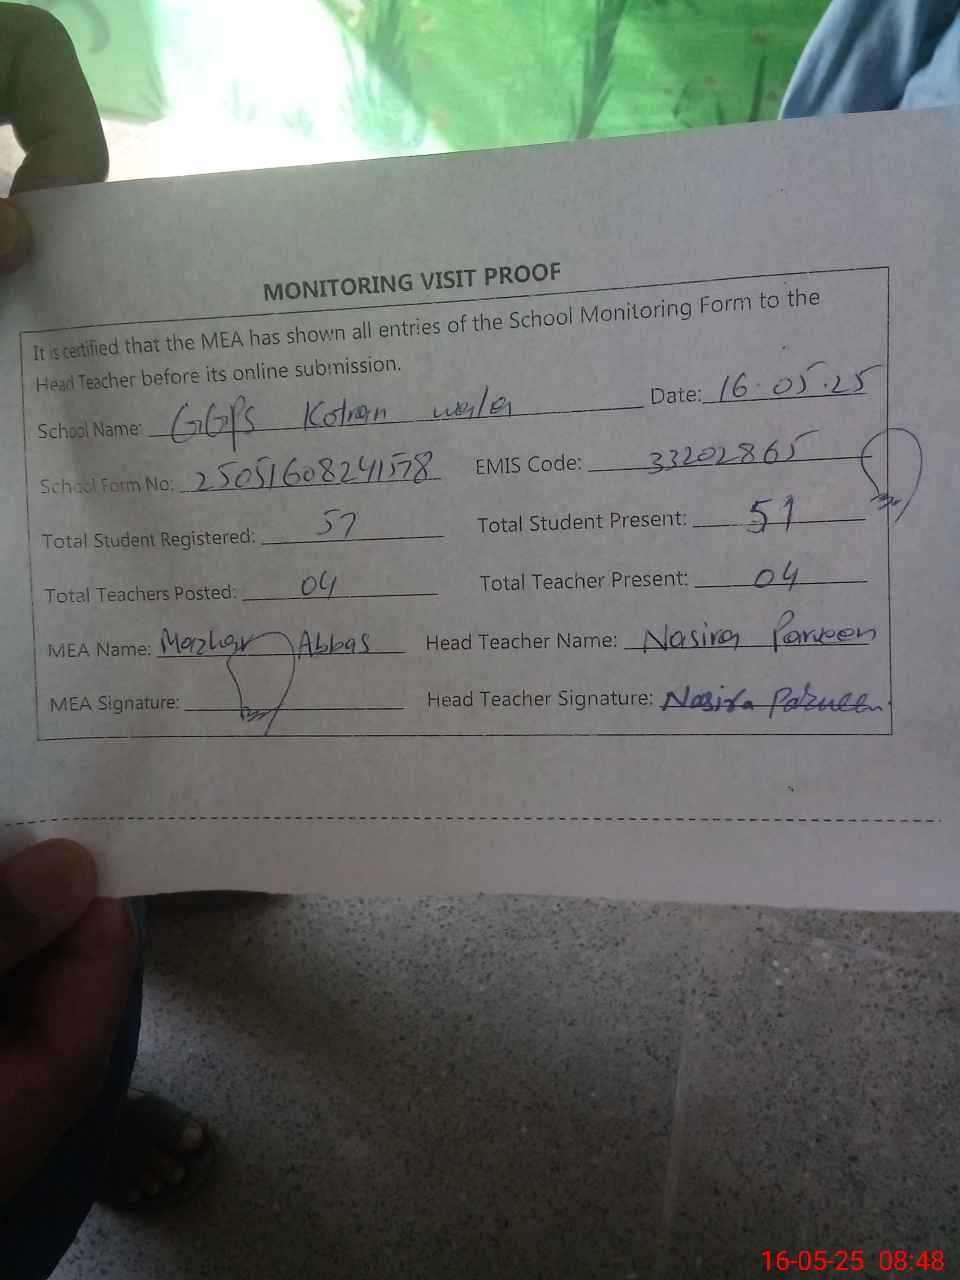 MONITORING VISIT PROOF
It is certified that the MEA has shown all entries of the School Monitoring Form to the
Head Teacher before its online submission.
School Name: GGPS Kotran wala Date: 16.05.25
School Form No: 25051608241578 EMIS Code: 33202865
Total Student Registered: 57 Total Student Present: 51
Total Teachers Posted: 04 Total Teacher Present: 04
MEA Name: Mazhar Abbas Head Teacher Name: Nasira Parveen
MEA Signature: Head Teacher Signature: Nasira Parveen
16-05-25 08:48